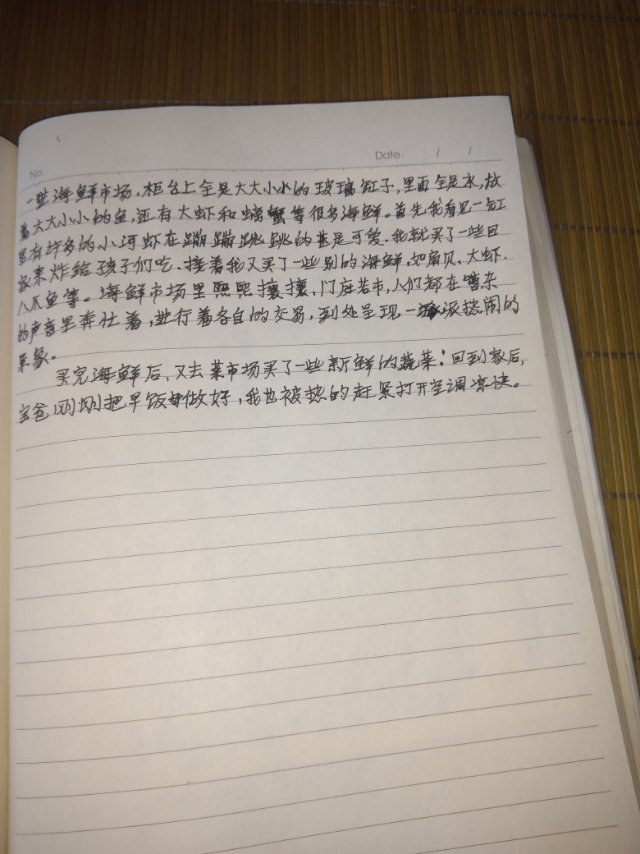 No.
Date: / /
一进海鲜市场,柜台上全是大大小小的玻璃缸子,里面全是水,放
着大大小小的鱼,还有大虾和螃蟹等很多海鲜。首先我看见一缸
里有许多的小河虾在蹦蹦跳跳的甚是可爱,我就买了一些回
家来炸给孩子们吃,接着我又买了一些别的海鲜,如扇贝、大虾、
八爪鱼等。海鲜市场里熙熙攘攘,门庭若市,人们都在嘈杂
的声音里奔忙着,进行着各自的交易,到处呈现一派热闹的
景象。
买完海鲜后,又去菜市场买了一些新鲜的蔬菜;回到家后,
宝爸刚刚把早饭做好,我也被热的赶紧打开空调凉快。